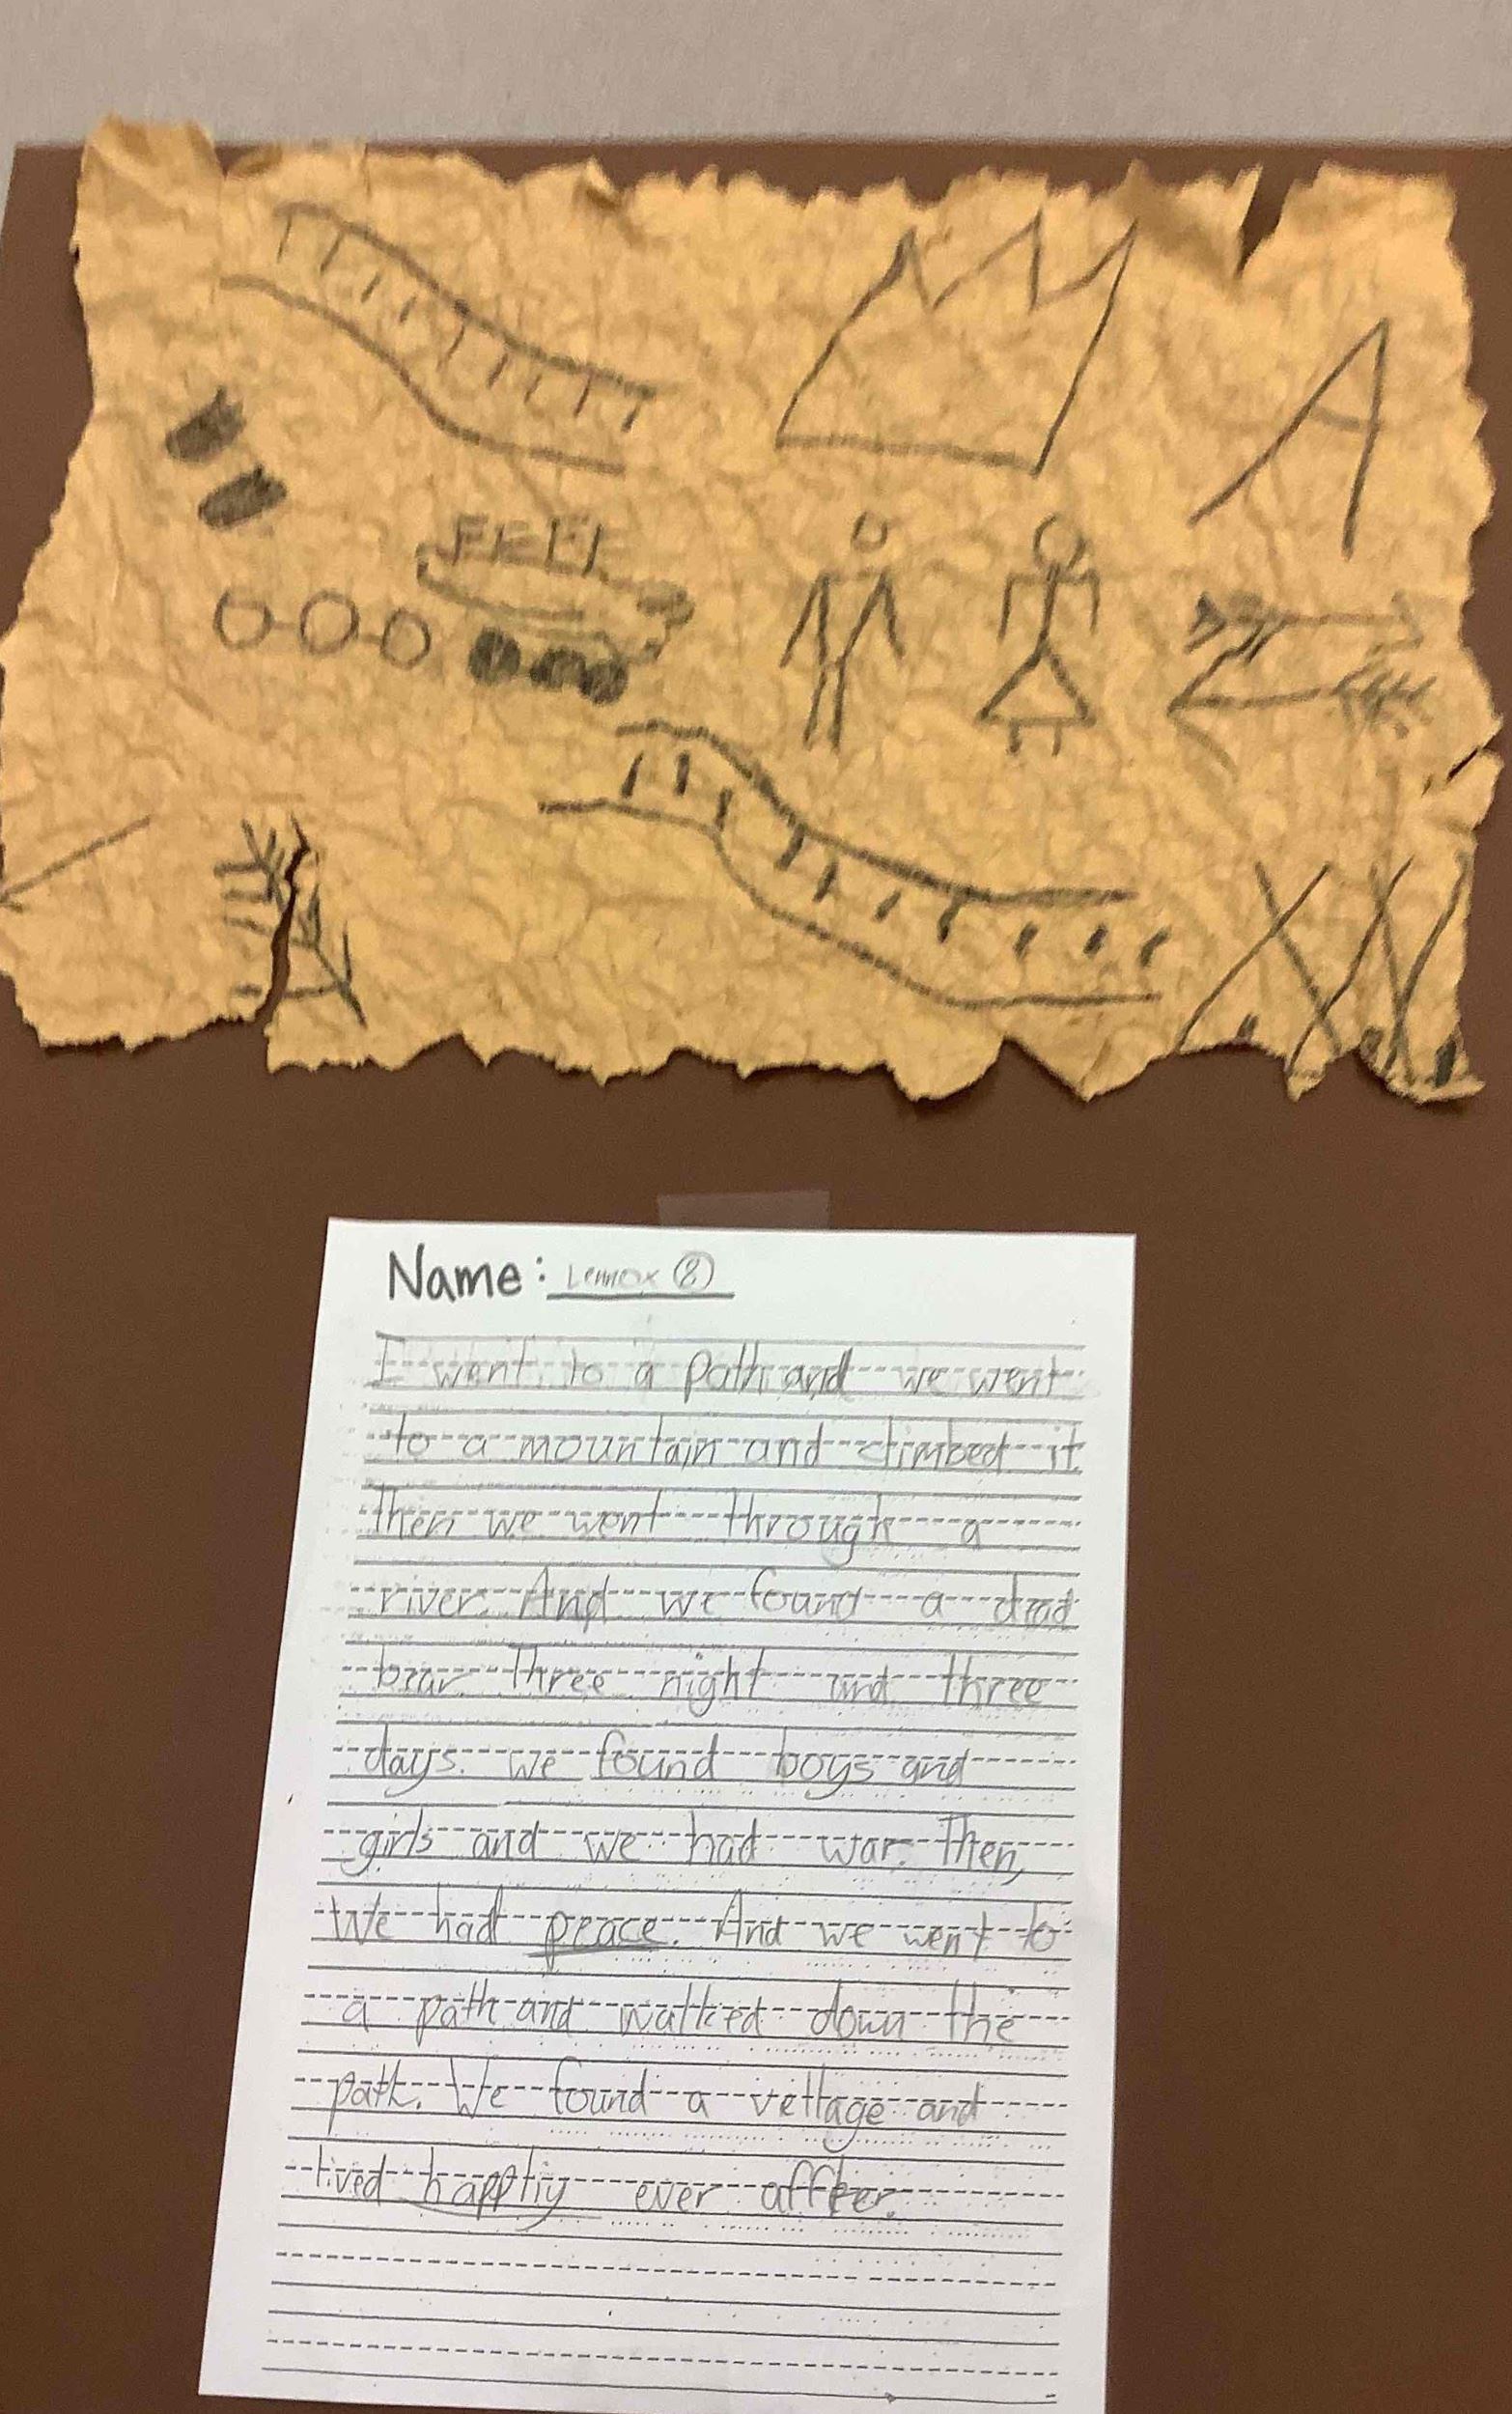 Name: Lennox (2)
I went to a path and we went
to a mountain and climbed it
then we went through a
river. And we found a dead
bear. three night and three
days. we found boys and
girls and we had war. Then,
We had peace. And we went to
a path and walked down the
path. We found a vellage and
lived happliy ever affter.